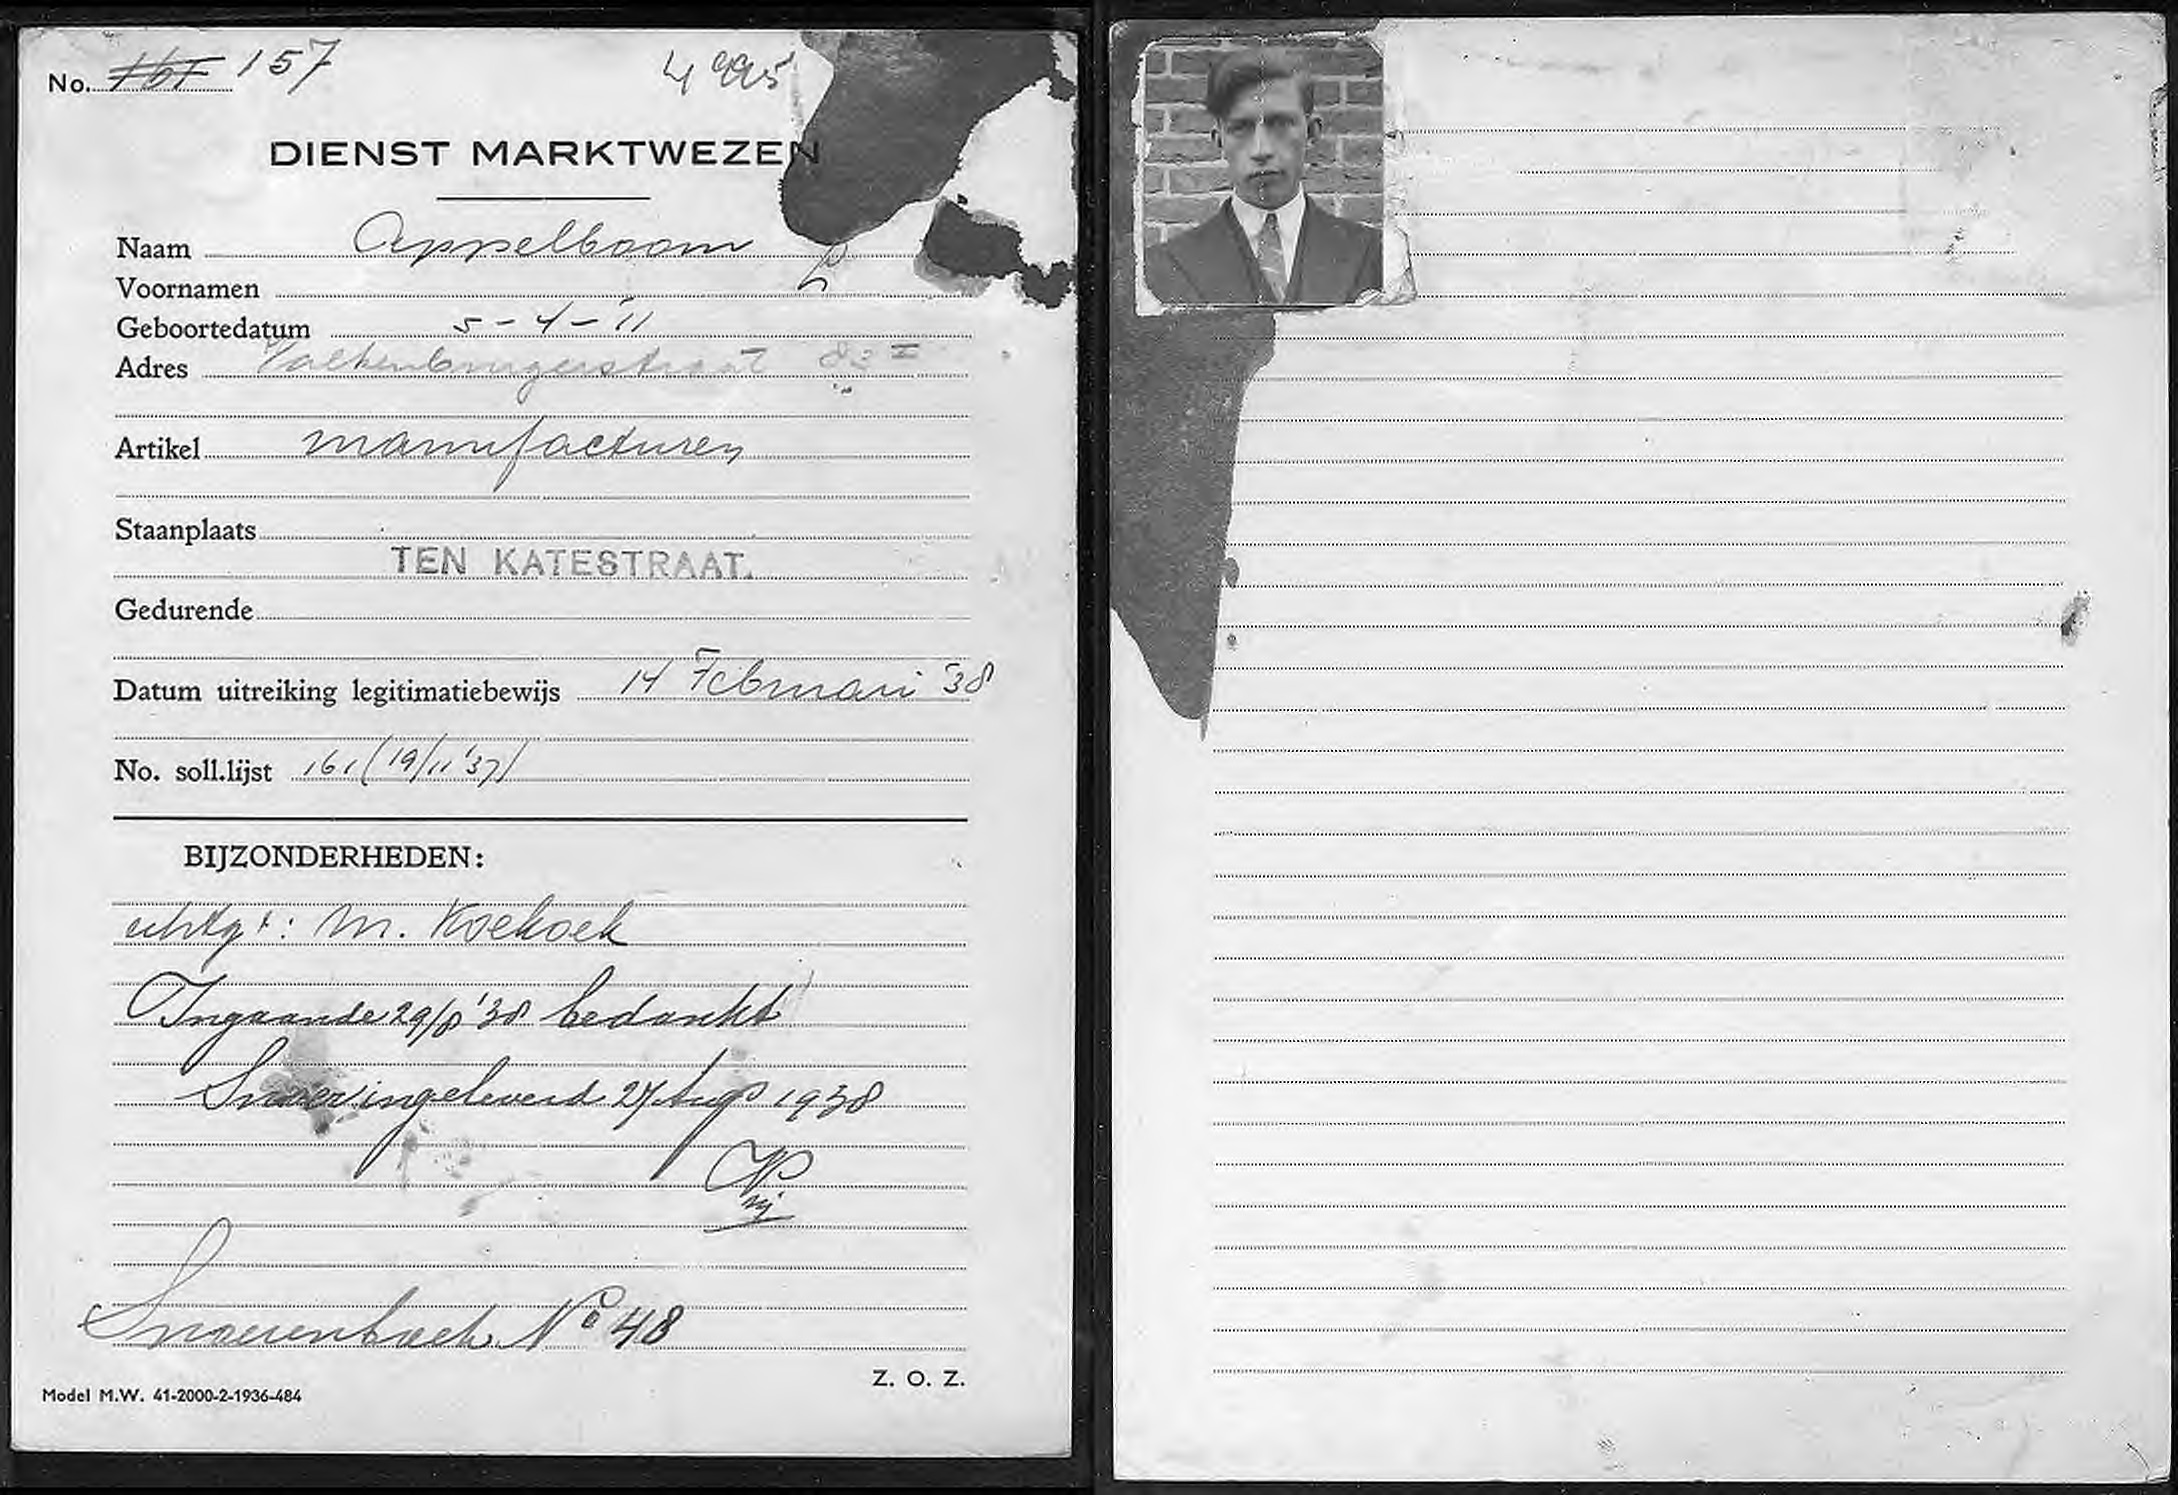 No. 161 157 4995
DIENST MARKTWEZEN
Naam Appelboom
Voornamen
Geboortedatum 5-4-'11
Adres Valkenburgerstraat 82 II
Artikel manufacturen
Staanplaats
TEN KATESTRAAT.
Gedurende
Datum uitreiking legitimatiebewijs 14 Februari '38
No. soll.lijst 161 (19/11 '37)
BIJZONDERHEDEN:
echtgt: M. Koekoek
Ingaande 29/8 '38 bedankt
Snoer ingeleverd 27 Aug 1938
Snoerenboek No 48
Z. O. Z.
Model M.W. 41-2000-2-1936-484